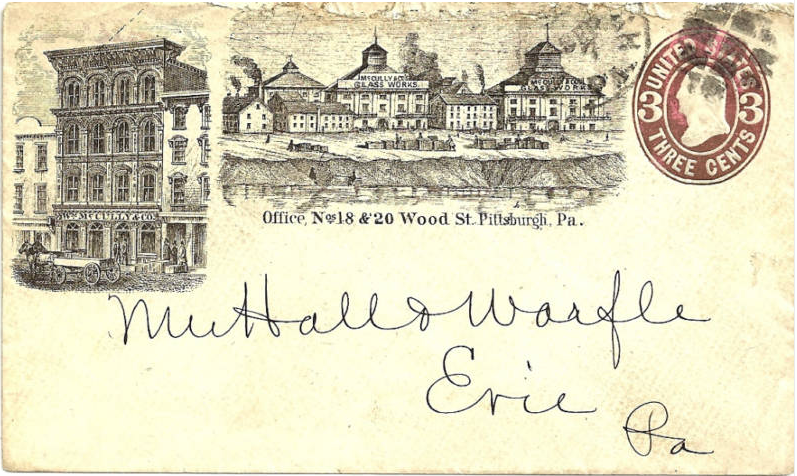 Wm. McCULLY & CO.
McCULLY & CO.
GLASS WORKS.
McCULLY & CO.
GLASS WORKS
Office, Nos 18 & 20 Wood St. Pittsburgh, Pa.
UNITED STATES
3 3
THREE CENTS
Hall & Warfle
Erie
Pa